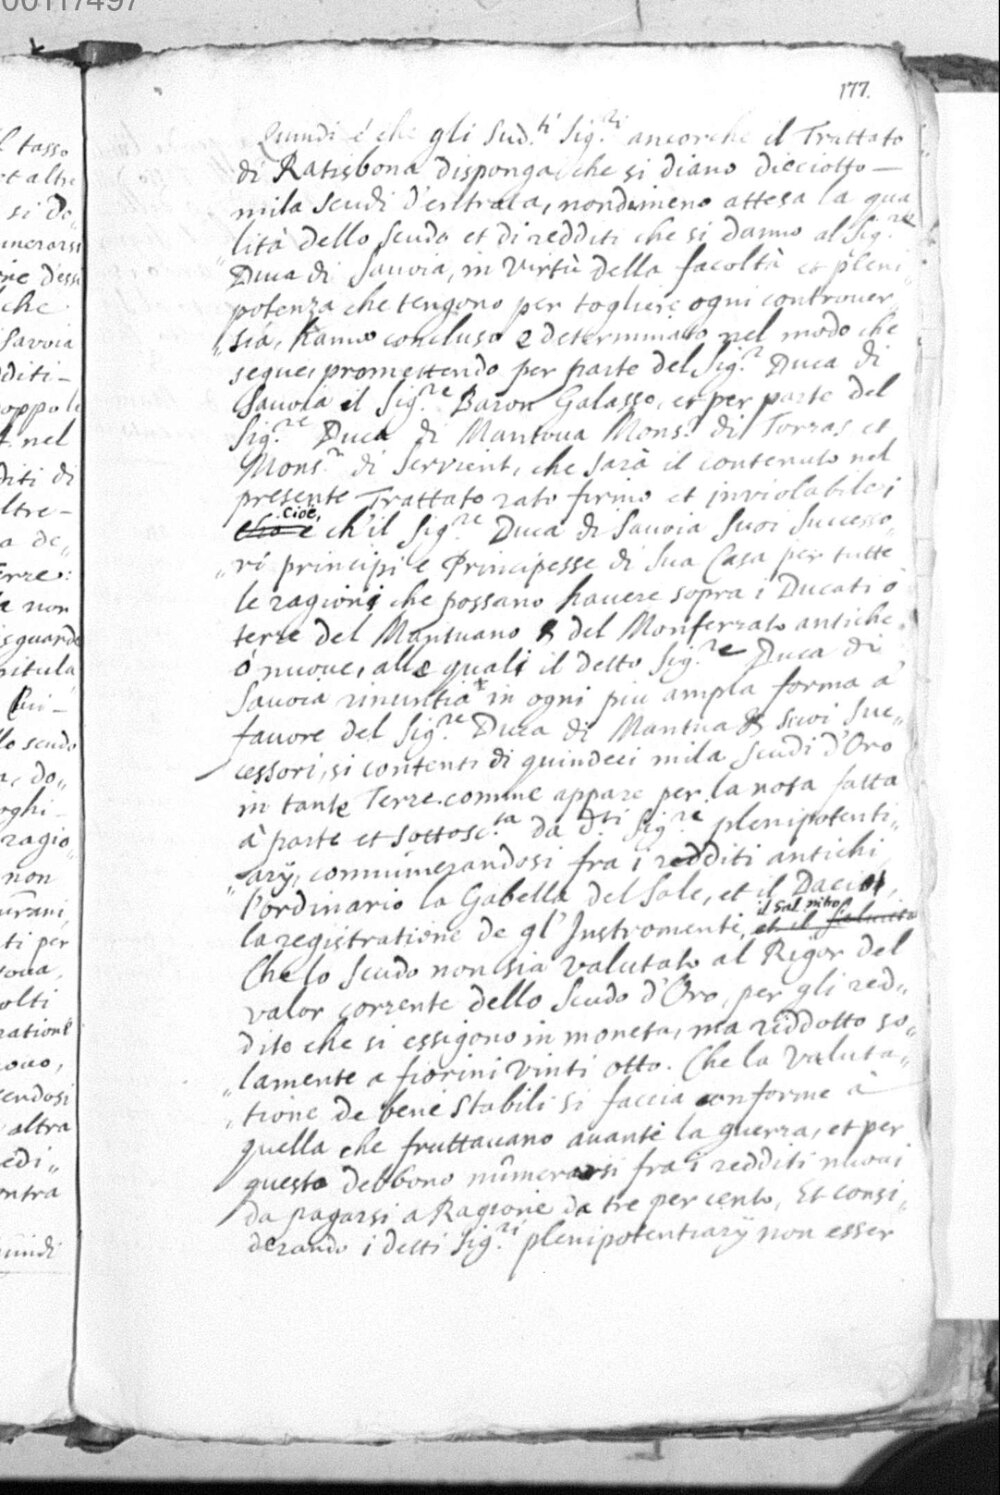 00117497
177.
Quindi é che gli Sud.ti Sig.ri ancorche il Trattato
di Ratisbona disponga, che si diano dicciotto —
mila scudi d'entrata, nondimeno attesa la qua
lità dello scudo et di redditi che si danno al Sig.re
Duca di Savoia, in virtù della facoltà et pleni
potenza che tengono per togliere ogni controver„
„sia, hanno concluso e determinato nel modo che
segue, promettendo per parte del Sig.r Duca di
Savoia il Sig.re Baron Galasso, et per parte del
Sig.re Duca di Mantova Mons.r di Torras et
Mons.r di Servient, che sarà il contenuto nel
presente Trattato rato firmo et inviolabile;
Cioè,
ch'il Sig.re Duca di Savoia suoi successo„
„ri principi e Principesse di sua Casa per tutte
le ragioni che possano havere sopra i Ducati ò
terre del Mantuano & del Monferrato antiche,
ó nuove, alle quali il detto Sig.re Duca di
Savoia rinuntia in ogni più ampla forma a
favore del Sig.re Duca di Mantua & suoi suc„
cessori, si contenti di quindeci mila scudi d'Oro
in tante Terre comme appare per la nota fatta
à parte et sottosc.ta da d.ti Sig.re plenipotenti„
„arÿ, connumerandosi fra i redditi antichi
l'ordinario la Gabella del Sale, et il Dacio,
il Sal nitro,
la registratione de gl'Instromenti, et il Salnitro
Che lo scudo non sia valutato al Rigor del
valor corrente dello scudo d'Oro, per gli red„
dito che si essigono in moneta, ma riddotto so„
„lamente a fiorini vinti otto. Che la valuta„
„tione de beni stabili si faccia conforme à
quella che fruttavano avanti la guerra, et per
questo debbono numerarsi fra i redditi nuovi
da pagarsi a Ragione da tre per cento, Et consi„
derando i detti Sig.ri plenipotentiarÿ non esser